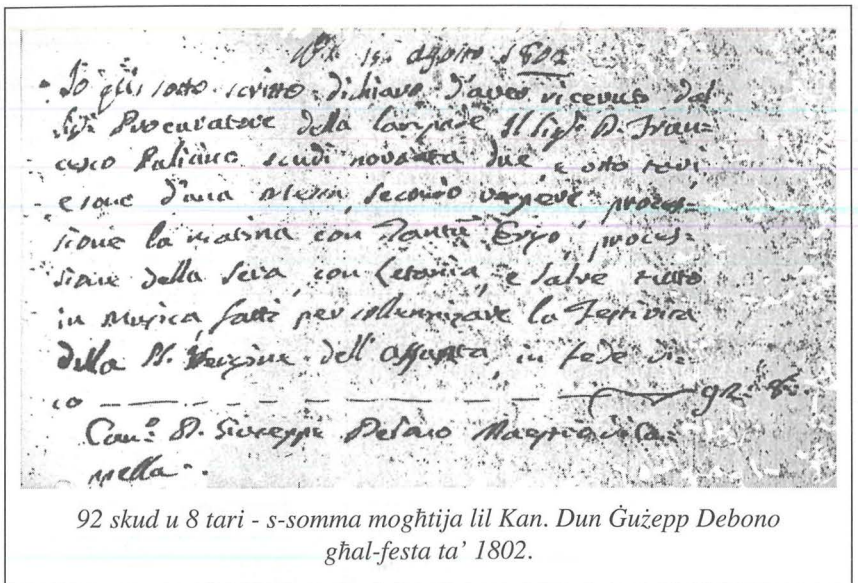 15. agosto 1802
Io qui sotto scritto dichiaro d'aver ricevuto dal
Sig.r Procuratore della lampade Il Sig.r D. Fran=
cesco Paliano scudi novanta due, e otto tari
e sono d'una Messa, secondo vespere, proces=
sione la matina con Tantu Ergo, proces=
sione della sera, con Letania, e Salve tutto
in Musica, fatti per sollennizare la Festivita
della B. Vergine dell'Assunta, in fede di=
co — — — — — — 92:8:
Can.co D. Giuseppe Debono Maestro di Ca=
pella.
92 skud u 8 tari - s-somma mogħtija lil Kan. Dun Ġużepp Debono
għal-festa ta' 1802.